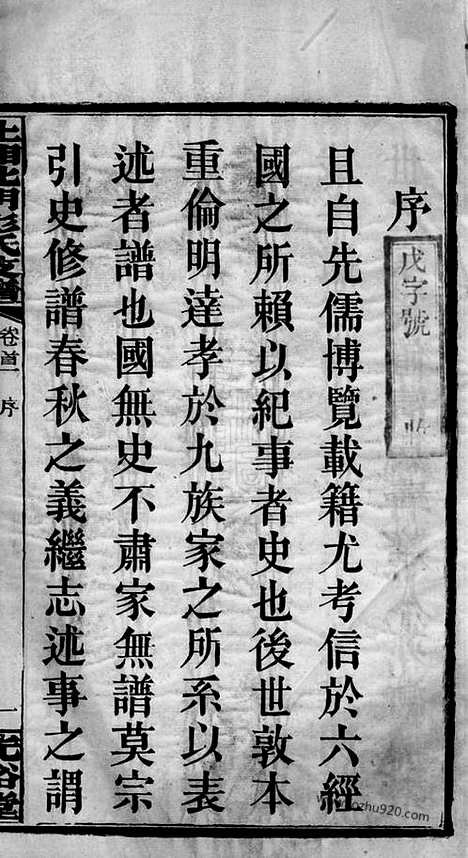 序
戊字號
且自先儒博覽載籍尤考信於六經
國之所賴以紀事者史也後世敦本
重倫明達孝於九族家之所系以表
述者譜也國無史不肅家無譜莫宗
引史修譜春秋之義繼志述事之謂
上湘北門彭氏支譜
卷首
序
一
光裕堂
zhu920.com